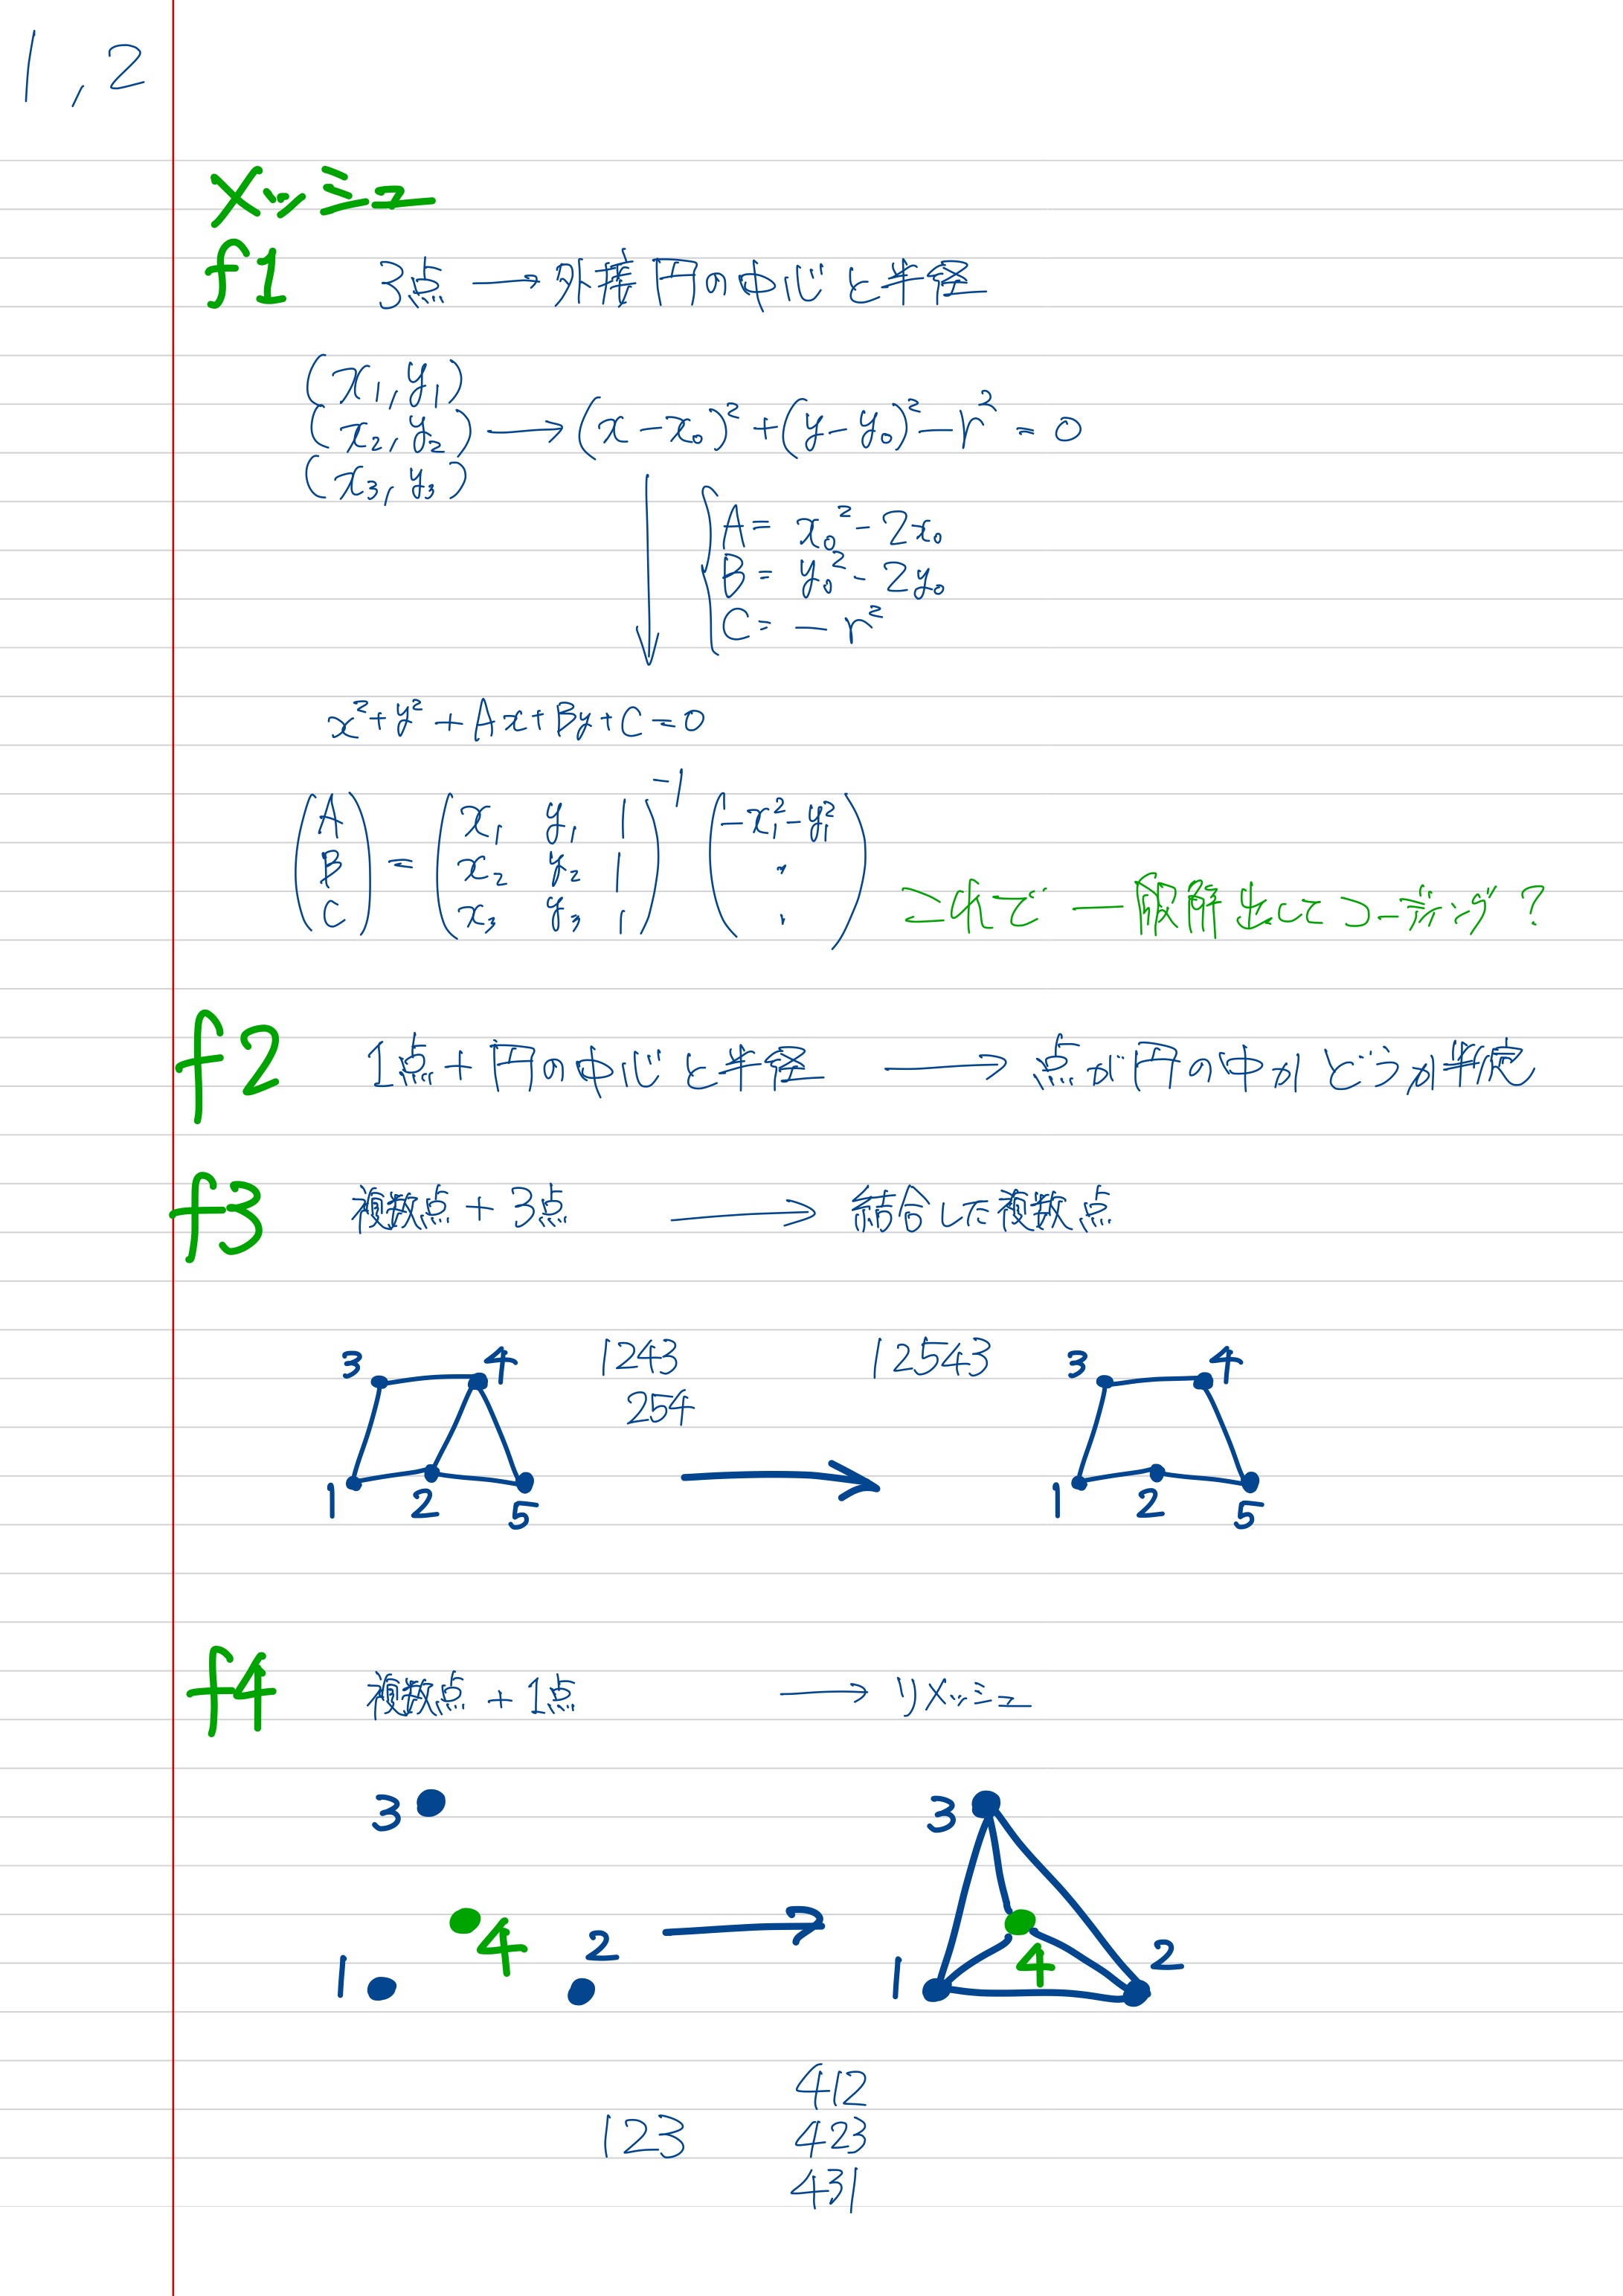 1,2
メッシュ
f1 3点 → 外接円の中心と半径
(x₁,y₁)
(x₂,y₂) → (x-x₀)²+(y-y₀)²-r²=0
(x₃,y₃)
A= x₀²-2x₀
B= y₀²-2y₀
C= -r²
x²+y²+Ax+By+C=0
(A B C) = (x₁ y₁ 1 x₂ y₂ 1 x₃ y₃ 1)⁻¹ (-x₁²-y₁² . .) これで一般解出してコーディング?
f2 1点+円の中心と半径 → 点が円の中かどうか判定
f3 複数点+3点 → 結合した複数点
3 4 1243 12543 3 4
254
1 2 5 → 1 2 5
f4 複数点+1点 → リメッシュ
3 3
4 2 → 4 2
1 1
412
123 423
431